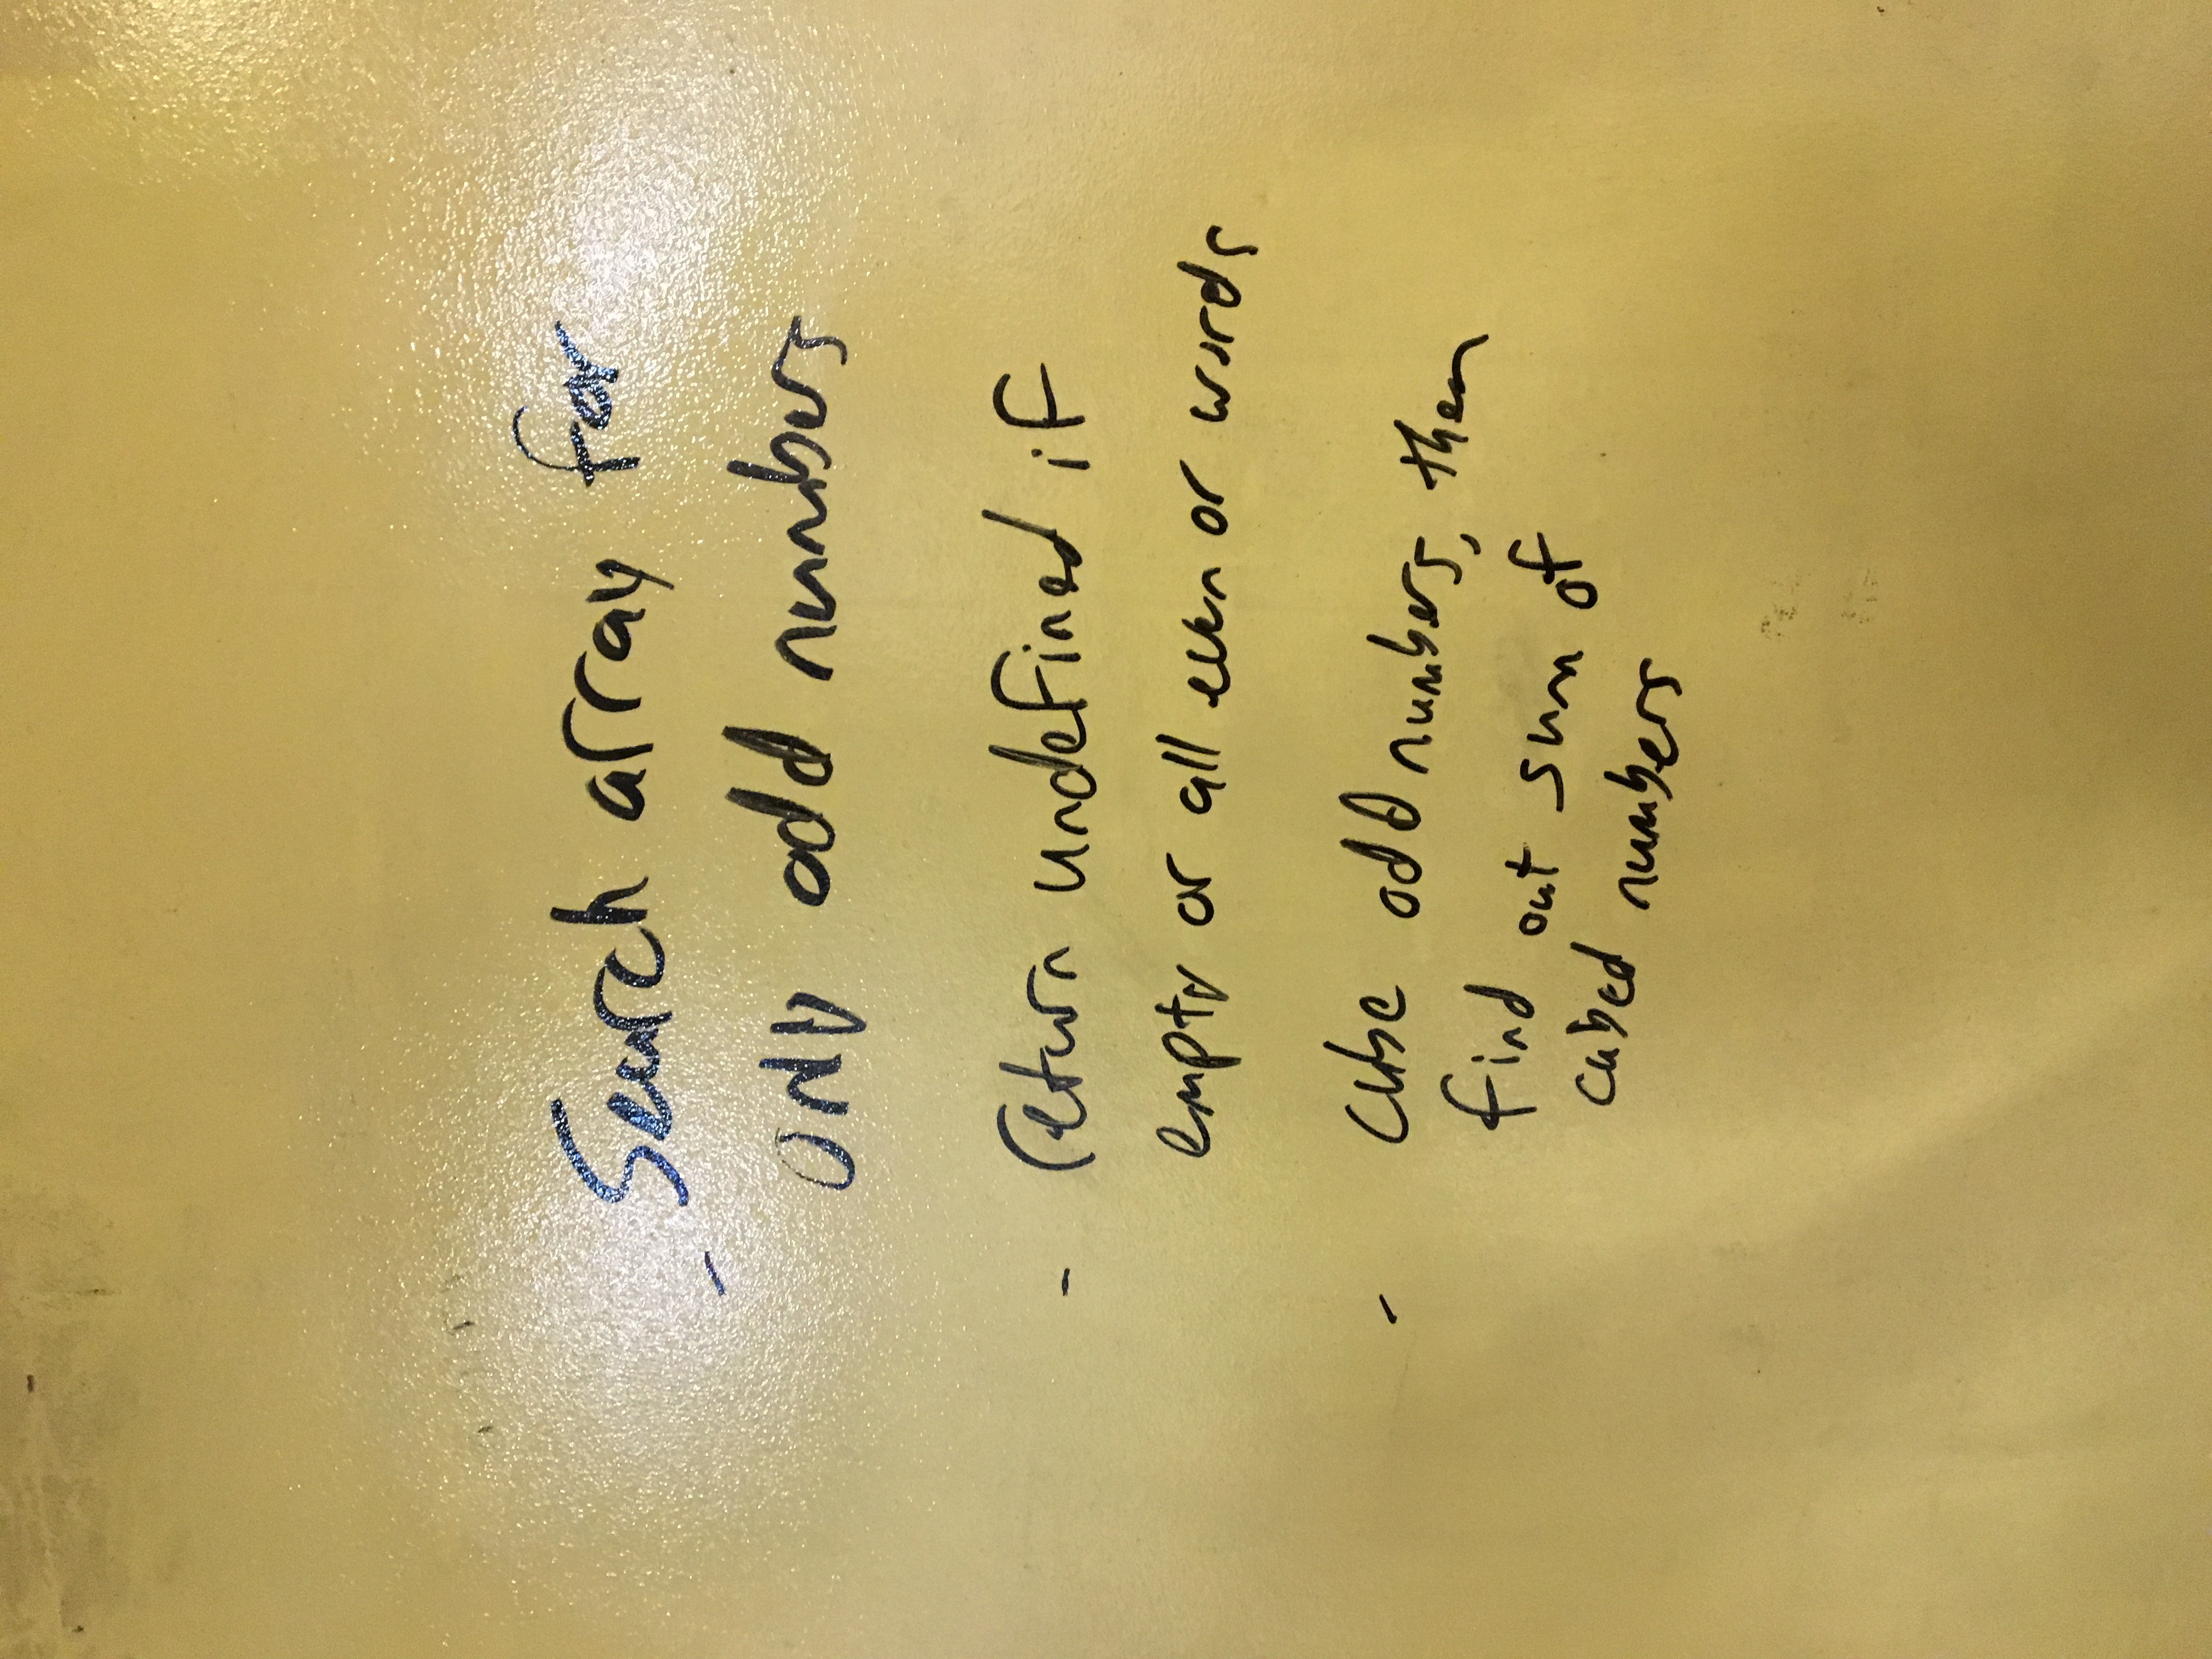 - Search array for
only odd numbers
- return undefined if
empty or all even or words
- cube odd numbers, then
find out sum of
cubed numbers